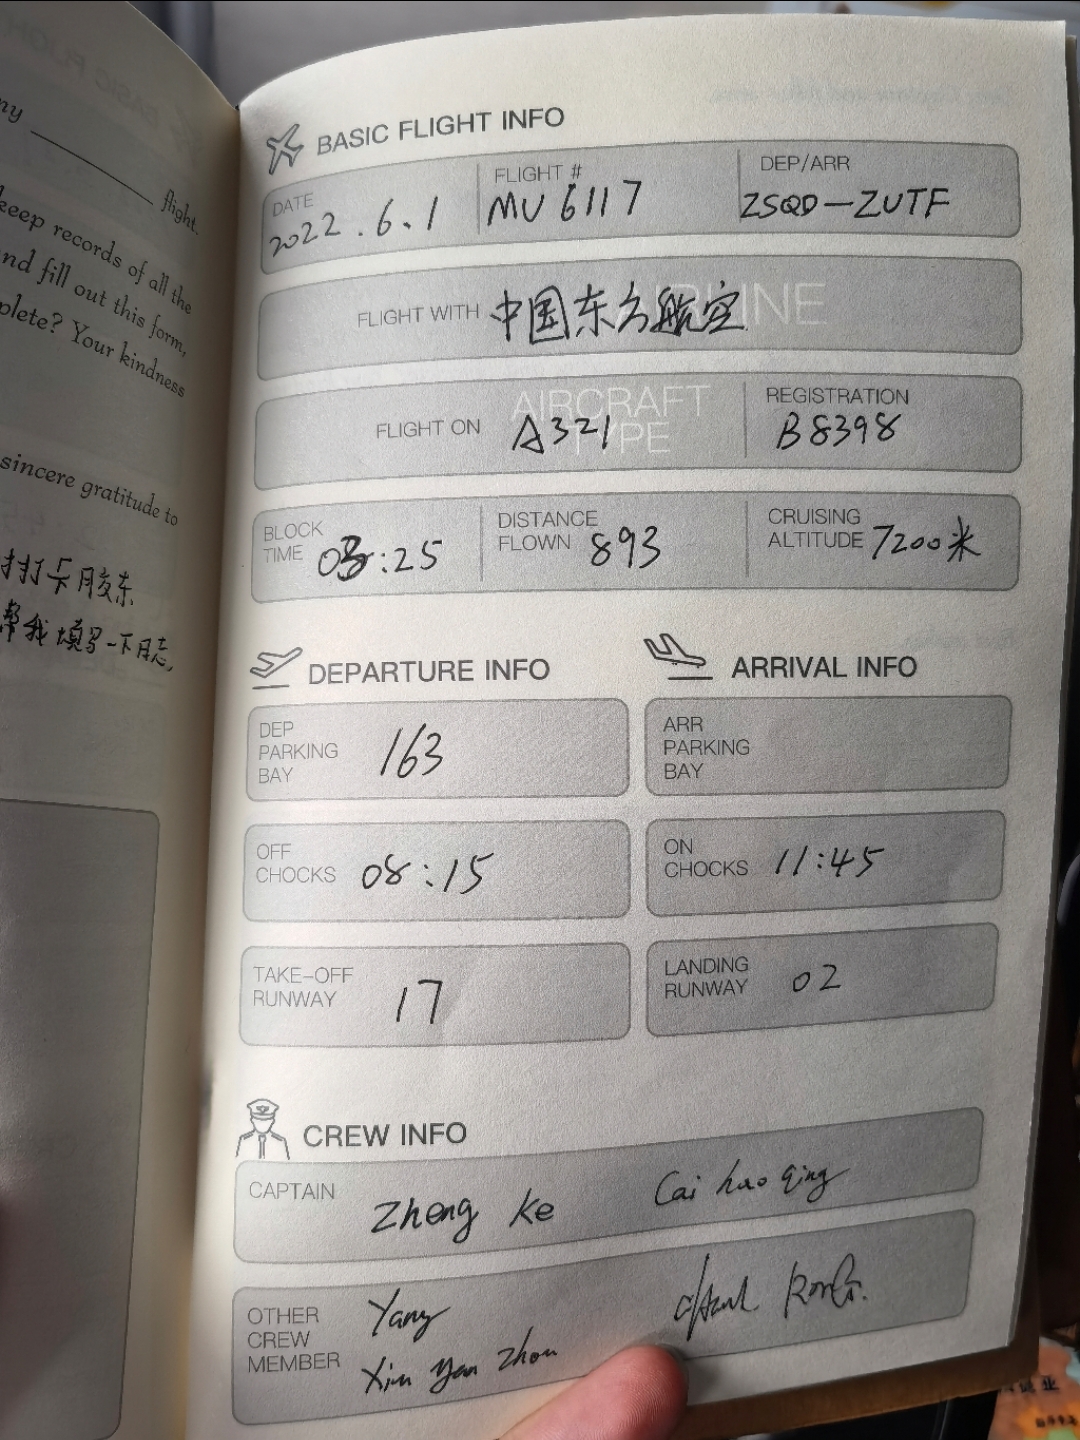 ny ______ flight.
keep records of all the
nd fill out this form,
plete? Your kindness
sincere gratitude to
打卡胶东
帮我填写一下日志,
BASIC FLIGHT INFO
DATE 2022.6.1
FLIGHT # MU 6117
DEP/ARR ZSQD-ZUTF
FLIGHT WITH 中国东方航空
FLIGHT ON A321
AIRCRAFT
TYPE
REGISTRATION B8398
BLOCK
TIME 03:25
DISTANCE
FLOWN 893
CRUISING
ALTITUDE 7200米
DEPARTURE INFO
DEP
PARKING
BAY 163
OFF
CHOCKS 08:15
TAKE-OFF
RUNWAY 17
ARRIVAL INFO
ARR
PARKING
BAY
ON
CHOCKS 11:45
LANDING
RUNWAY 02
CREW INFO
CAPTAIN Zheng Ke Cai hao qing
OTHER
CREW
MEMBER Yang
Xin Yan Zhou